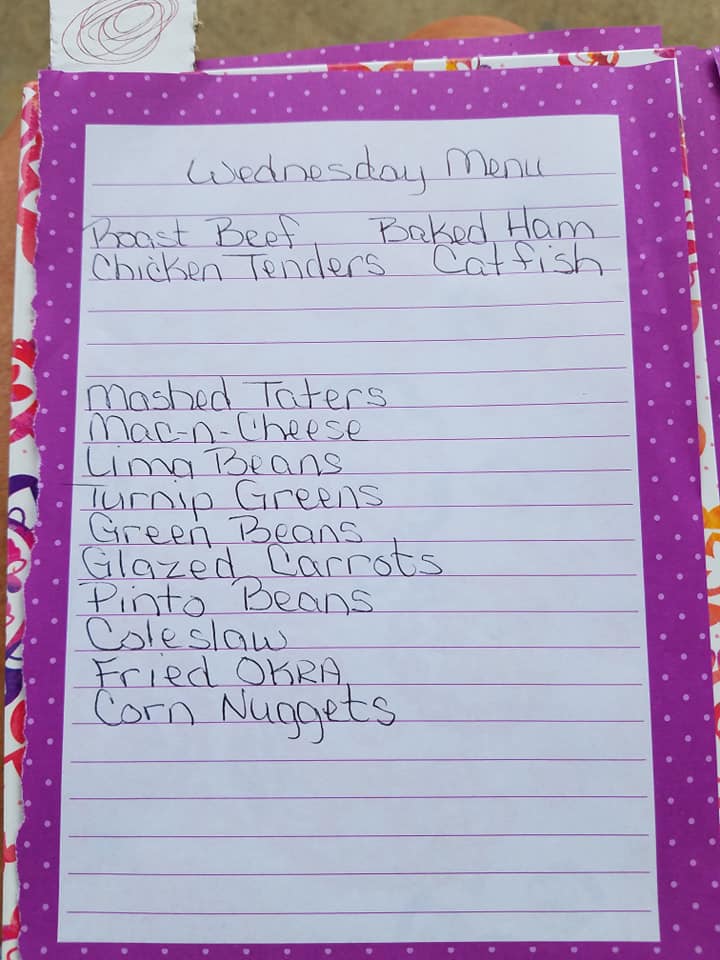 Wednesday Menu
Roast Beef Baked Ham
Chicken Tenders Catfish
Mashed Taters
Mac-n-Cheese
Lima Beans
Turnip Greens
Green Beans
Glazed Carrots
Pinto Beans
Coleslaw
Fried OKRA
Corn Nuggets